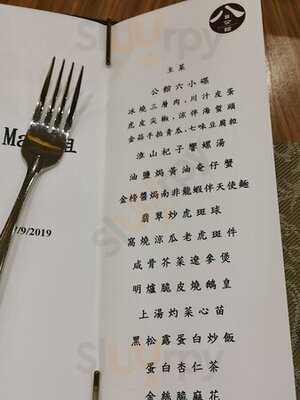 主菜
公館六小碟
冰燒三層肉，川汁皮蛋
虎皮尖椒，涼伴海蜇頭
金蒜手拍青瓜，七味豆腐粒
淮山杞子響螺湯
油鹽焗黃油奄仔蟹
金榜醬焗南非龍蝦伴天使麵
翡翠炒虎斑球
窩燒涼瓜老虎斑件
咸骨芥菜遼參煲
明爐脆皮燒鵝皇
上湯灼菜心苗
黑松露蛋白炒飯
蛋白杏仁茶
金絲脆麻花
/9/2019